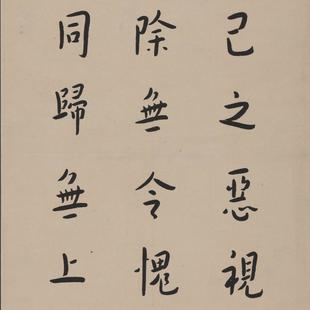 己之惡視
除無令愧
同歸無上